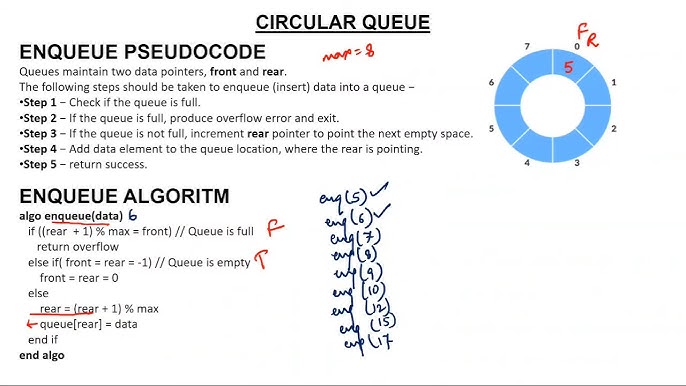 CIRCULAR QUEUE
ENQUEUE PSEUDOCODE
max = 8
Queues maintain two data pointers, front and rear.
The following steps should be taken to enqueue (insert) data into a queue –
•Step 1 – Check if the queue is full.
•Step 2 – If the queue is full, produce overflow error and exit.
•Step 3 – If the queue is not full, increment rear pointer to point the next empty space.
•Step 4 – Add data element to the queue location, where the rear is pointing.
•Step 5 – return success.
F R
7 0
6 5 1
5 2
4 3
ENQUEUE ALGORITM
algo enqueue(data) 6
if ((rear + 1) % max = front) // Queue is full F
return overflow
else if( front = rear = -1) // Queue is empty T
front = rear = 0
else
rear = (rear + 1) % max
queue[rear] = data
end if
end algo
enq(5) ✓
enq(6) ✓
enq(7)
enq(8)
enq(9)
enq(10)
enq(12)
enq(15)
enq(17